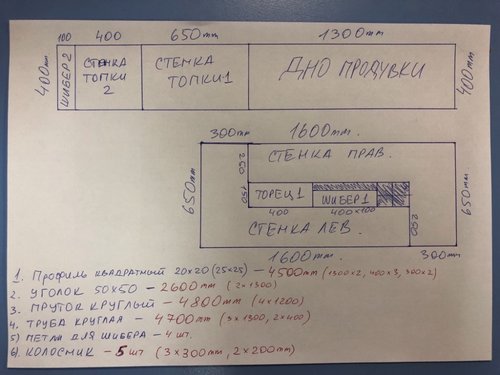 100 400 650mm 1300mm
400mm ШИБЕР 2 СТЕНКА ТОПКИ 2 СТЕНКА ТОПКИ 1 ДНО ПРОДУВКИ 400mm
300mm 1600mm.
650mm 250 СТЕНКА ПРАВ. 650mm.
150 ТОРЕЦ 1 ШИБЕР 1
400 400x100
СТЕНКА ЛЕВ. 250
1600mm 300mm
1. Профиль квадратный 20x20 (25x25) – 4500mm (1300x2, 400x3, 300x2)
2. УГОЛОК 50x50 – 2600mm (2x1300)
3. ПРУТОК КРУГЛЫЙ – 4800mm (4x1200)
4. ТРУБА КРУГЛАЯ – 4700mm (3x1300, 2x400)
5) ПЕТЛИ ДЛЯ ШИБЕРА – 4 шт.
6) КОЛОСНИК – 5 шт (3x300mm, 2x200mm)